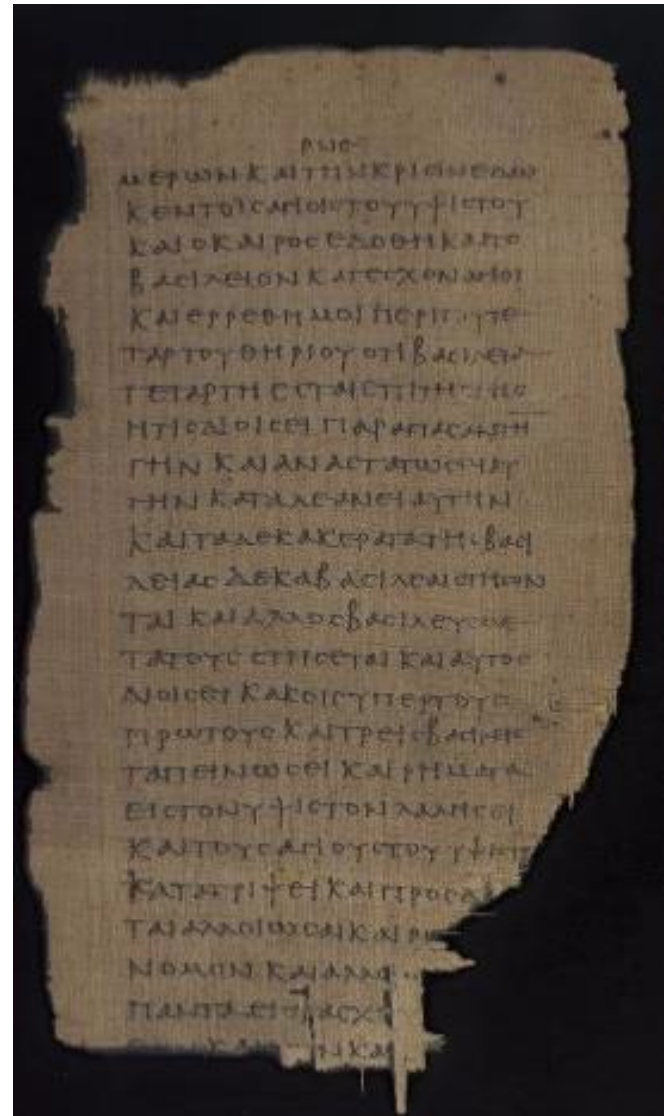 ΜΕΡΩΝΚΑΙΤΗΝΚΡΙϹΙΝΕΔΩ
ΚΕΝΤΟΙϹΑΓΙΟΙϹΤΟΥΥΨΙϹΤΟΥ
ΚΑΙΟΚΑΙΡΟϹΕΔΟΘΗΚΑΙΤΟ
ΒΑϹΙΛΕΙΟΝΚΑΤΕϹΧΟΝΑΓΙΟΙ
ΚΑΙΕΡΡΕΘΗΜΟΙΠΕΡΙΤΟΥΤΕ
ΤΑΡΤΟΥΘΗΡΙΟΥΟΤΙΒΑϹΙΛΕΙΑ
ΤΕΤΑΡΤΗΕϹΤΑΙΕΠΙΤΗϹΓΗϹ
ΗΤΙϹΔΙΟΙϹΕΙΠΑΡΑΠΑϹΑΝΤΗ
ΓΗΝΚΑΙΑΝΑϹΤΑΤΩϹΕΙΑΥ
ΤΗΝΚΑΤΑΛΕΑΝΕΙΑΥΤΗΝ
ΚΑΙΤΑΔΕΚΑΚΕΡΑΤΑΤΗϹΒΑϹΙ
ΛΕΙΑϹΔΕΚΑΒΑϹΙΛΕΙϹϹΤΗϹΟΝ
ΤΑΙΚΑΙΑΛΛΟϹΒΑϹΙΛΕΥϹΜΕ
ΤΑΤΟΥϹϹΤΗϹΕΤΑΙΚΑΙΑΥΤΟϹ
ΔΙΟΙϹΕΙΚΑΚΟΙϹΥΠΕΡΤΟΥϹ
ΠΡΩΤΟΥϹΚΑΙΤΡΕΙϹΒΑϹΙΛΕΙϹ
ΤΑΠΕΙΝΩϹΕΙΚΑΙΡΗΜΑΤΑ
ΕΙϹΤΟΝΥΨΙϹΤΟΝΛΑΛΗϹΕΙ
ΚΑΙΤΟΥϹΑΓΙΟΥϹΤΟΥΥΨΙϹΤ
ΚΑΤΑΤΡΙΨΕΙΚΑΙΠΡΟϹΔ
ΤΑΙΑΛΛΟΙΩϹΑΙΚΑΙΡ
ΝΟΜΟΝΚΑΙ
ΠΑΝΤΑΕΙϹΤΑϹΧ